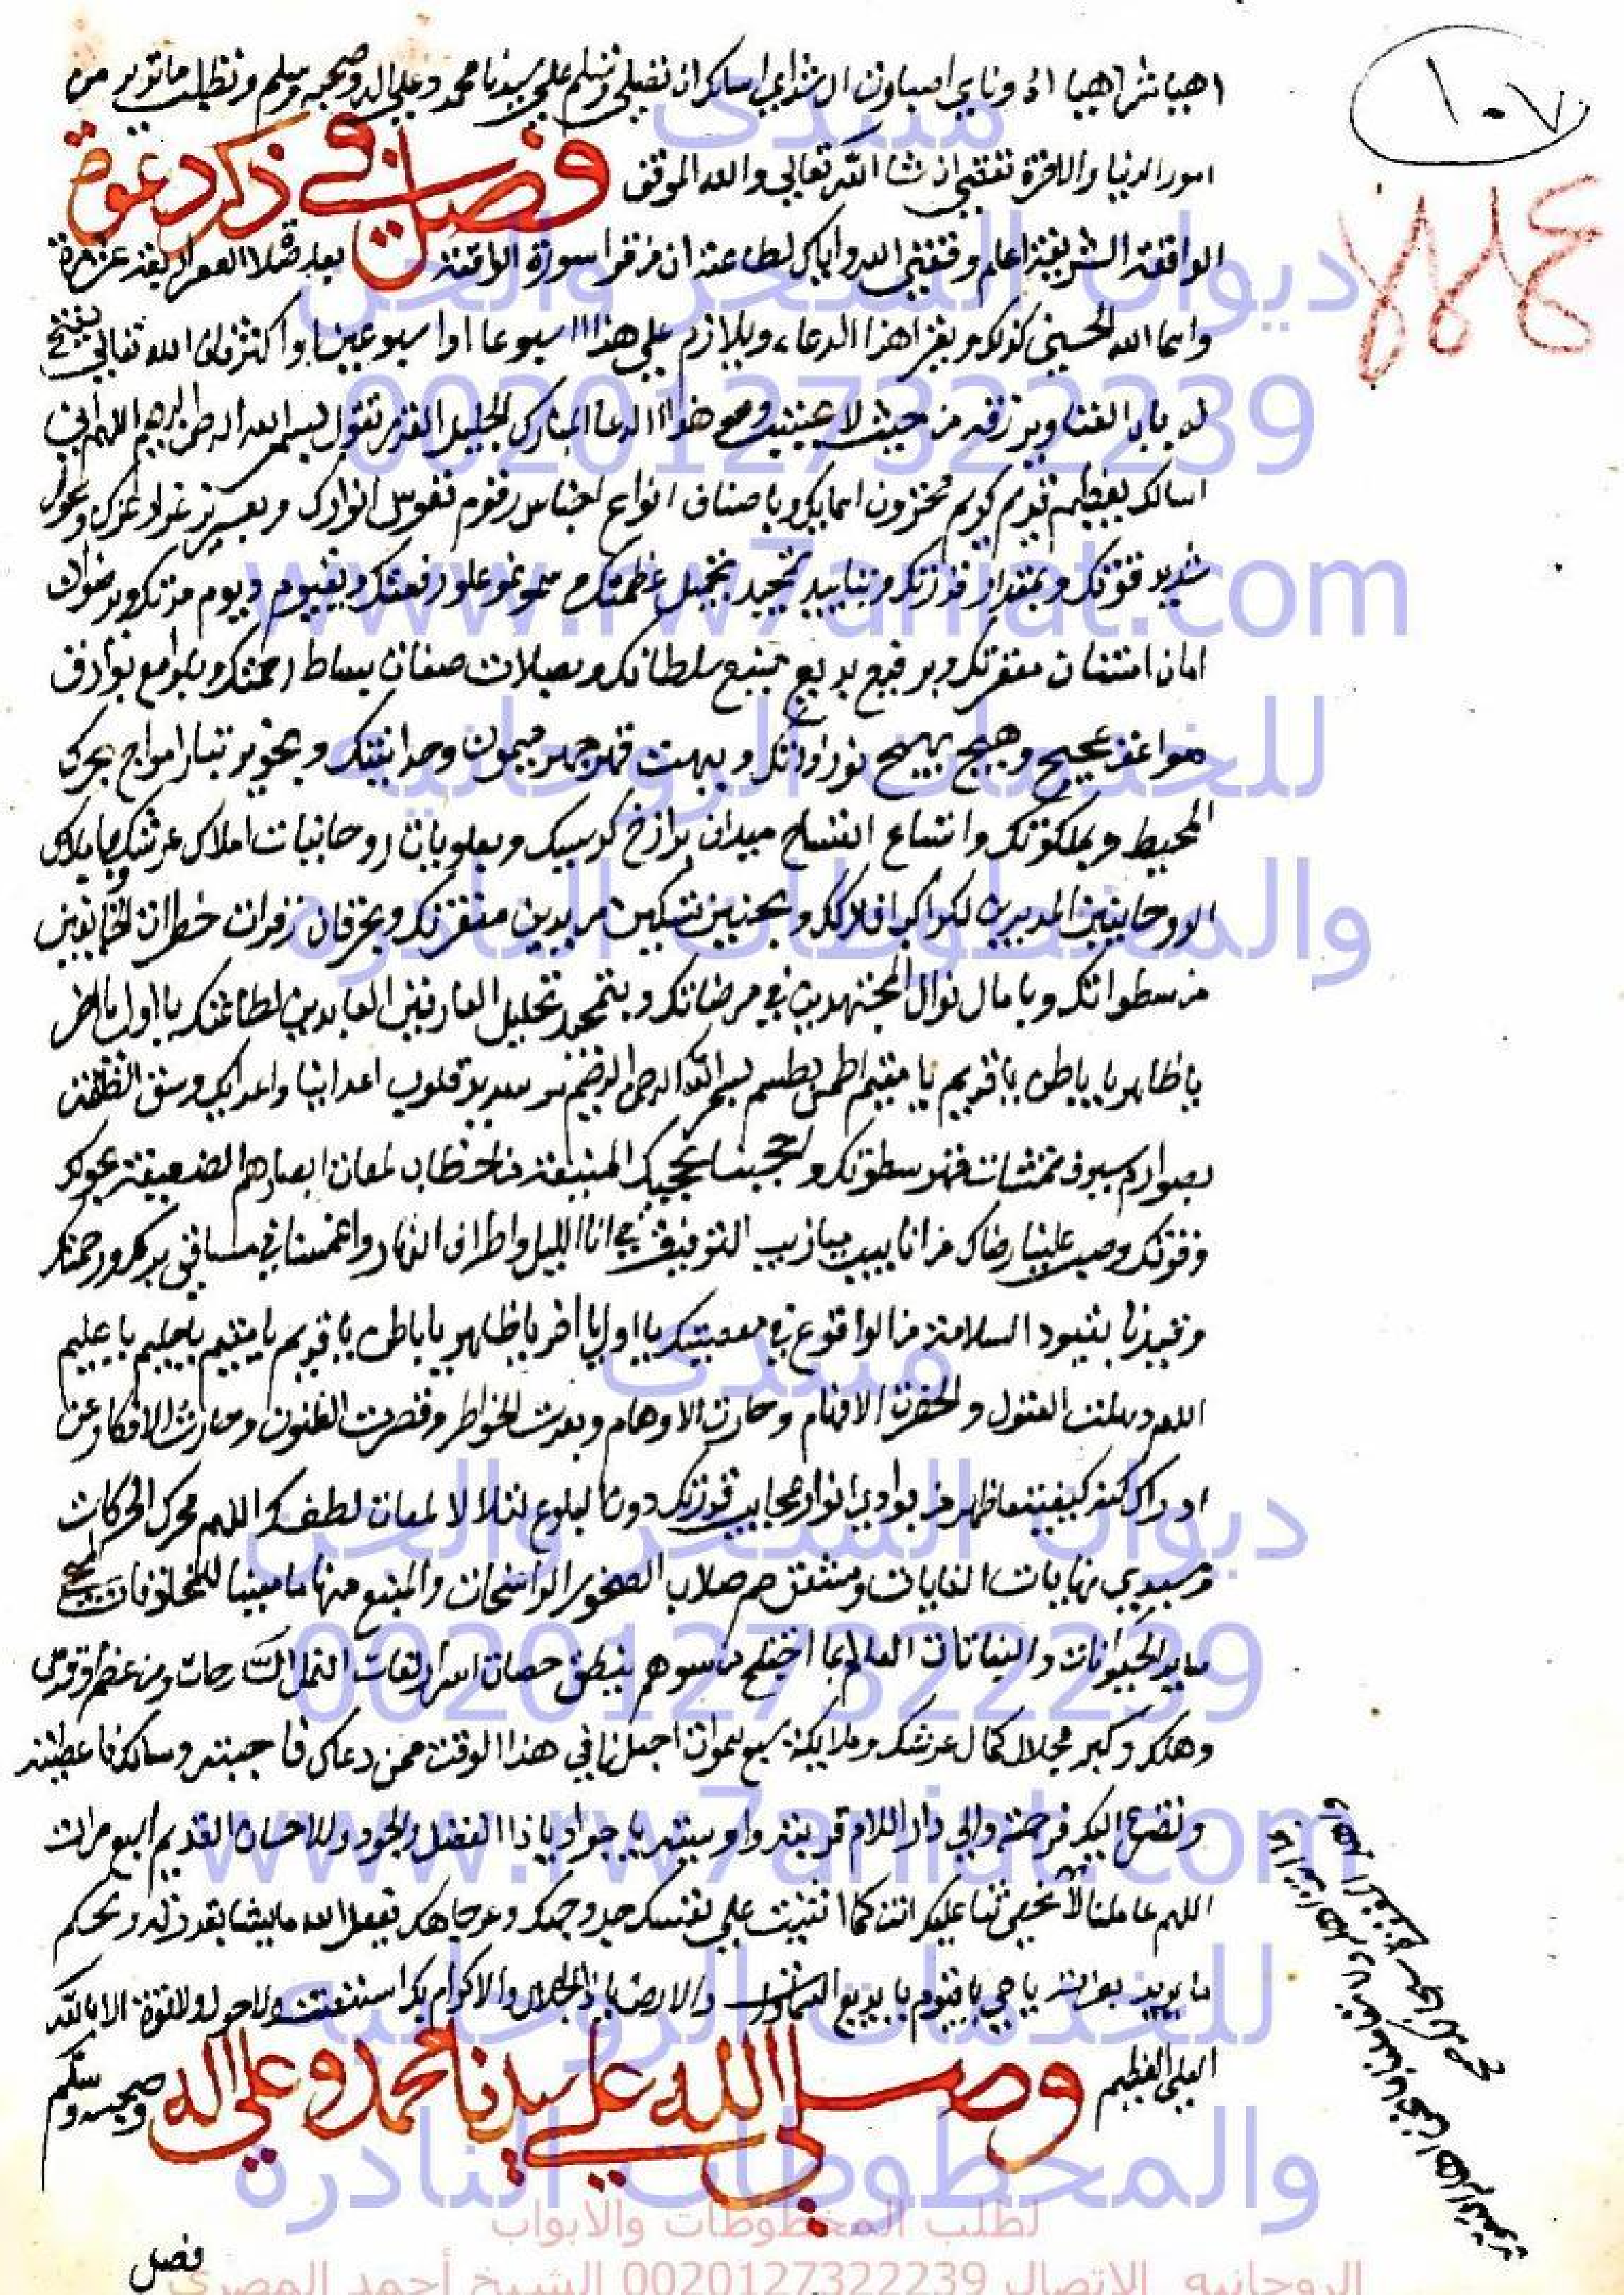 ١٠٧
اهيا شراهيا ادوناي اصباوت ال شداي اسالك ان تصلي وتسلم علي سيدنا محمد وعلي اله وصحبه وسلم وتطلب ما تريد من
امور الدنيا والاخرة تقضي ان شا الله تعالي والله الموفق فصل في ذكر دعوة
الواقعة الشريفة اعلم وفقني الله واياك لطاعته ان من قرا سورة الواقعة بعد صلاة العصر اربعة عشر مرة
واسما الله الحسني كذلك ويقرا هذا الدعاء ويلازم علي هذا اسبوعا او اسبوعين او اكثر فان الله تعالي يفتح
له باب الغنا ويرزقه من حيث لا يحتسب وهو هذا الدعا المبارك الجليل القدر تقول بسم الله الرحمن الرحيم اللهم اني
اسالك بعظيم قديم كريم مخزون اسمايك وباصناف انواع اجناس رقوم نقوش انوارك وبعزيز اعزاز عزك وبحول
شديد قوتك وبمقدار قدرتك وبتاييد تحميد تمجيد عظمتك وسمو نمو علو رفعتك وبقيوم ديوم مدتك وبرضوان
امان امتنان مغفرتك وبرفيع بديع منيع سلطانك وبصلات سعات بساط رحمتك وبلوامع بوارق
صواعق عجيج وهيج بهيج نور ذاتك وببهت قهر جهر ميمون وحدانيتك وبهدير تيار امواج بحرك
المحيط وبملكوتك واتساع انفساح ميدان برازخ كرسيك وبعلويات روحانيات املاك عرشك وباملاك
الروحانيين المدبرين لكواكب افلاكك وبحنين تسكين مريدين مغفرتك وبحرقات زفرات خطرات الخايفين
من سطواتك وبامال نوال المجتهدين في مرضاتك وبتمجيد تجليل العارفين العابدين لطاعتك يا اول يا اخر
يا ظاهر يا باطن يا قديم يا مقيم اطمس بطلسم بسم الله الرحمن الرحيم سر سويدا قلوب اعداينا واعدايك ودق اعناق
بصوارم سيوف نمشات قهر سطوتك واحجبنا بحجبك المنيعة عن لحظات لمعان ابصارهم الضعيفة بحولك
وقوتك وصب علينا رضاك من انابيب ميازيب التوفيق في انا الليل واطراف النهار واغمسنا في مساقي برك ورحمتك
وقيدنا بقيود السلامة من الوقوع في معصيتك يا اول يا اخر يا ظاهر يا باطن يا قديم يا مقيم يا حليم يا عليم
اللهم ذهلت العقول وانحصرت الافهام وحارت الاوهام وبعدت الخواطر وقصرت الظنون وحارت الافكار عن
ادراك كنه كيفية ما ظهر من بوادي انوار عجايب قدرتك دون البلوغ لتلالا لمعات لطفك اللهم محرك الحركات
ومبدي نهايات الغايات ومشقق صم صلاب الصخور الراسخات والمنبع منها ما معينا للمخلوقات المحيي
ساير الحيوانات والنباتات العالم بما اختلج من سرهم بنطق اسرار لغات النمل السارحات ومن عظم وقدس
وهلل وكبر لجلال كمال عرشك وملايكة سبع سموات اجعلنا في هذا الوقت ممن دعاك فاجبته وسالك فاعطيته
وتضرع اليك فرحمته والي دار السلام قربته وادنيته يا جواد يا ذا الفضل والجود والاحسان القديم اربع مرات
اللهم عاملنا لا نحصي ثنا عليك انت كما اثنيت علي نفسك يفعل الله ما يشا بقدرته ويحكم
ما يريد بعزته يا حي يا قيوم يا بديع السموات والارض يا ذا الجلال والاكرام بك استغثت ولا حول ولا قوة الا بالله
العلي العظيم وصلي الله علي سيدنا محمد وعلي اله وصحبه وسلم
فصل
منتدى
ديوان السحر والجن
0020127322239
www.rw7aniat.com
للخدمات الروحانيه
والمخطوطات النادرة
منتدى
ديوان السحر والجن
0020127322239
www.rw7aniat.com
للخدمات الروحانيه
والمخطوطات النادرة
لطلب المخطوطات والابواب
الروحانيه الاتصال 0020127322239 الشيخ أحمد المصري